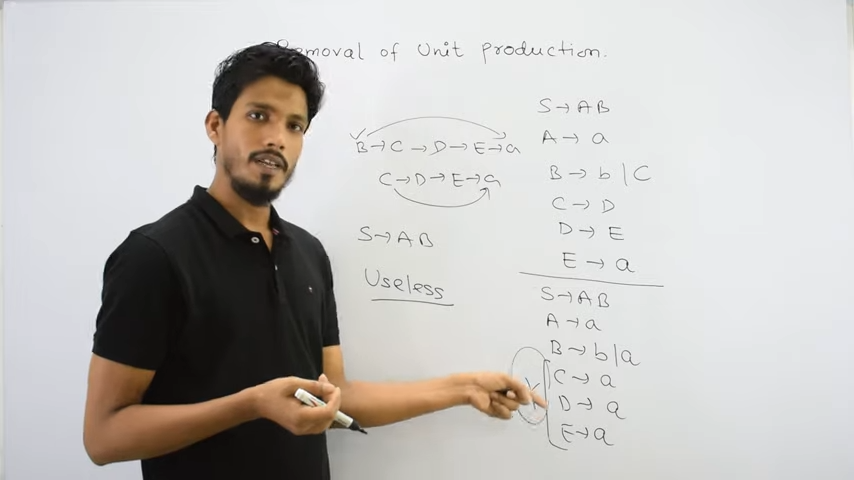 Removal of Unit production.
B → C → D → E → a
C → D → E → a
S → AB
Useless
S → AB
A → a
B → b | C
C → D
D → E
E → a
S → AB
A → a
B → b | a
C → a
D → a
E → a